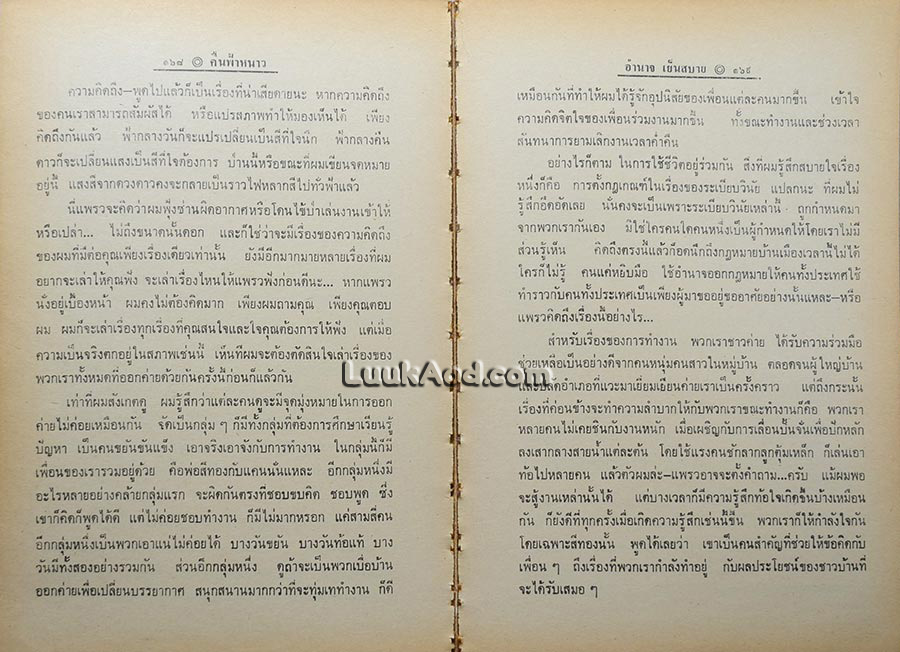 ๑๖๘ ◎ คืนฟ้าหนาว
ความคิดถึง—พูดไปแล้วก็เป็นเรื่องที่น่าเสียดายนะ หากความคิดถึง
ของคนเราสามารถสัมผัสได้ หรือแปรสภาพทำให้มองเห็นได้ เพียง
คิดถึงกันแล้ว ฟ้ากลางวันก็จะแปรเปลี่ยนเป็นสีที่ใจนึก ฟ้ากลางคืน
ดาวก็จะเปลี่ยนแสงเป็นสีที่ใจต้องการ ป่านนี้หรือขณะที่ผมเขียนจดหมาย
อยู่นี้ แสงสีจากดวงดาวคงจะกลายเป็นราวไฟหลากสีไปทั่วฟ้าแล้ว
นี่แพรวจะคิดว่าผมฟุ้งซ่านผิดอากาศหรือโดนไข้ป่าเล่นงานเข้าให้
หรือเปล่า... ไม่ถึงขนาดนั้นดอก และก็ใช่ว่าจะมีเรื่องของความคิดถึง
ของผมที่มีต่อคุณเพียงเรื่องเดียวเท่านั้น ยังมีอีกมากมายหลายเรื่องที่ผม
อยากจะเล่าให้คุณฟัง จะเล่าเรื่องไหนให้แพรวฟังก่อนดีนะ... หากแพรว
นั่งอยู่เบื้องหน้า ผมคงไม่ต้องคิดมาก เพียงผมถามคุณ เพียงคุณตอบ
ผม ผมก็จะเล่าเรื่องทุกเรื่องที่คุณสนใจและใจคุณต้องการให้ฟัง แต่เมื่อ
ความเป็นจริงตกอยู่ในสภาพเช่นนี้ เห็นทีผมจะต้องตัดสินใจเล่าเรื่องของ
พวกเราทั้งหมดที่ออกค่ายด้วยกันครั้งนี้ก่อนก็แล้วกัน
เท่าที่ผมสังเกตดู ผมรู้สึกว่าแต่ละคนดูจะมีจุดมุ่งหมายในการออก
ค่ายไม่ค่อยเหมือนกัน จัดเป็นกลุ่ม ๆ ก็มีทั้งกลุ่มที่ต้องการศึกษาเรียนรู้
ปัญหา เป็นคนขยันขันแข็ง เอาจริงเอาจังกับการทำงาน ในกลุ่มนี้ก็มี
เพื่อนของเรารวมอยู่ด้วย คือพ่อสีทองกับแคนนั่นแหละ อีกกลุ่มหนึ่งมี
อะไรหลายอย่างคล้ายกลุ่มแรก จะผิดกันตรงที่ชอบขบคิด ชอบพูด ซึ่ง
เขาก็คิดก็พูดได้ดี แต่ไม่ค่อยชอบทำงาน ก็มีไม่มากหรอก แค่สามสี่คน
อีกกลุ่มหนึ่งเป็นพวกเอาแน่ไม่ค่อยได้ บางวันขยัน บางวันท้อแท้ บาง
วันมีทั้งสองอย่างรวมกัน ส่วนอีกกลุ่มหนึ่ง ดูถ้าจะเป็นพวกเบื่อบ้าน
ออกค่ายเพื่อเปลี่ยนบรรยากาศ สนุกสนานมากกว่าที่จะทุ่มเททำงาน ก็ดี
อำนาจ เย็นสบาย ◎ ๑๖๙
เหมือนกันที่ทำให้ผมได้รู้จักอุปนิสัยของเพื่อนแต่ละคนมากขึ้น เข้าใจ
ความคิดจิตใจของเพื่อนร่วมงานมากขึ้น ทั้งขณะทำงานและช่วงเวลา
สันทนาการยามเลิกงานเวลาค่ำคืน
อย่างไรก็ตาม ในการใช้ชีวิตอยู่ร่วมกัน สิ่งที่ผมรู้สึกสบายใจเรื่อง
หนึ่งก็คือ การตั้งกฎเกณฑ์ในเรื่องของระเบียบวินัย แปลกนะ ที่ผมไม่
รู้สึกอึดอัดเลย นั่นคงจะเป็นเพราะระเบียบวินัยเหล่านี้ ถูกกำหนดมา
จากพวกเรากันเอง มิใช่ใครคนใดคนหนึ่งเป็นผู้กำหนดให้โดยเราไม่มี
ส่วนรู้เห็น คิดถึงตรงนี้แล้วก็อดนึกถึงกฎหมายบ้านเมืองเวลานี้ไม่ได้
ใครก็ไม่รู้ คนแค่หยิบมือ ใช้อำนาจออกกฎหมายให้คนทั้งประเทศใช้
ทำราวกับคนทั้งประเทศเป็นเพียงผู้มาขออยู่ขออาศัยอย่างนั้นแหละ—หรือ
แพรวคิดถึงเรื่องนี้อย่างไร...
สำหรับเรื่องของการทำงาน พวกเราชาวค่าย ได้รับความร่วมมือ
ช่วยเหลือเป็นอย่างดีจากคนหนุ่มคนสาวในหมู่บ้าน ตลอดจนผู้ใหญ่บ้าน
และปลัดอำเภอที่แวะมาเยี่ยมเยียนค่ายเราเป็นครั้งคราว แต่ถึงกระนั้น
เรื่องที่ค่อนข้างจะทำความลำบากให้กับพวกเราขณะทำงานก็คือ พวกเรา
หลายคนไม่เคยชินกับงานหนัก เมื่อเผชิญกับการเลื่อนปั้นจั่นเพื่อปักหลัก
ลงเสากลางสายน้ำแต่ละต้น โดยใช้แรงคนชักลากลูกตุ้มเหล็ก ก็เล่นเอา
ท้อไปหลายคน แล้วตัวผมล่ะ—แพรวอาจจะตั้งคำถาม...ครับ แม้ผมพอ
จะสู้งานเหล่านั้นได้ แต่บางเวลาก็มีความรู้สึกท้อใจเกิดขึ้นบ้างเหมือน
กัน ก็ยังดีที่ทุกครั้งเมื่อเกิดความรู้สึกเช่นนี้ขึ้น พวกเราก็ให้กำลังใจกัน
โดยเฉพาะสีทองนั้น พูดได้เลยว่า เขาเป็นคนสำคัญที่ช่วยให้ข้อคิดกับ
เพื่อน ๆ ถึงเรื่องที่พวกเรากำลังทำอยู่ กับผลประโยชน์ของชาวบ้านที่
จะได้รับเสมอ ๆ
LuukAod.com